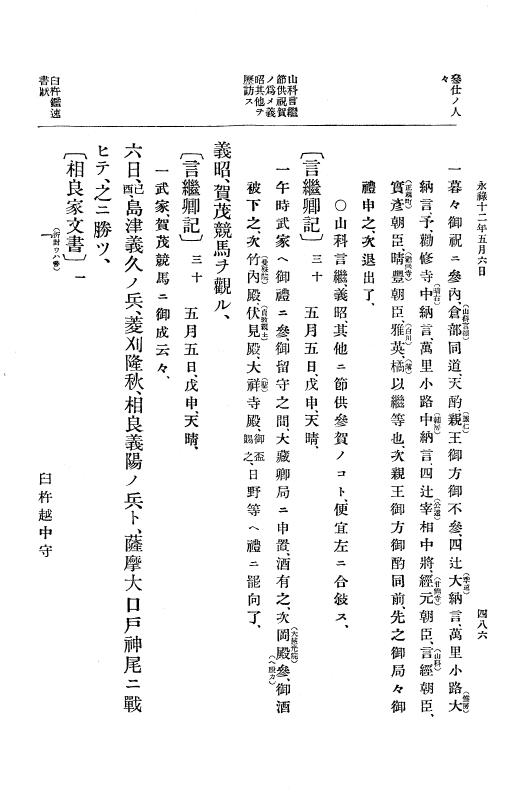 永祿十二年五月六日
四八六
參仕ノ人々
山科言繼節供祝賀ノ爲メ義昭其他ヲ歷訪ス
臼杵鑑速書狀
一暮々御祝ニ參內、倉部(山科言經)同道、天酌、親王(誠仁)御方御不參、四辻大納言(季遠)、萬里小路大(惟房)
納言、予、勸修寺中納言(晴右)、萬里小路中納言(輔房)、四辻宰相中將(公遠)、經元(甘露寺)朝臣、言經(山科)朝臣、
實彥(正親町)朝臣、晴豐(勸修寺)朝臣、雅英(白川)、橘(薄)以繼等也、次親王御方御酌同前、先之御局々御
禮申之、次退出了、
○山科言繼、義昭其他ニ節供參賀ノコト、便宜左ニ合敍ス、
〔言繼卿記〕 三十 五月五日、戊申、天晴、
一午時武家へ御禮ニ參、御留守之間、大藏卿局ニ申置、酒有之、次岡殿(大慈光院)參(へ脫カ)、御酒
被下之、次竹內殿(曼殊院)、伏見殿(貞敦親王)、大祥寺殿(聖)御盃賜之、日野等へ禮ニ罷向了、
義昭、賀茂競馬ヲ觀ル、
〔言繼卿記〕 三十 五月五日、戊申、天晴、
一武家、賀茂競馬ニ御成云々、
六日、己酉、島津義久ノ兵、菱刈隆秋、相良義陽ノ兵ト、薩摩大口戶神尾ニ戰
ヒテ、之ニ勝ツ、
〔相良家文書〕 一
(折封ウハ書)
臼杵越中守